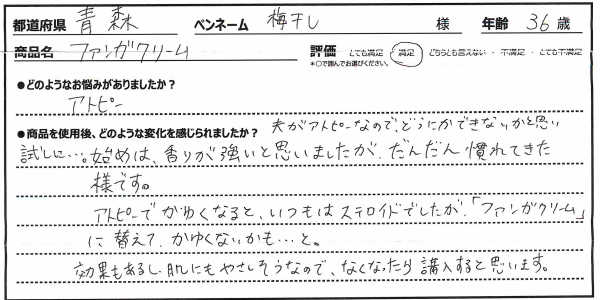 都道府県 青森 ペンネーム 梅干し 様 年齢 36歳
商品名 ファンガクリーム 評価 とても満足 ・ 満足 ・ どちらも言えない ・ 不満足 ・ とても不満足
*○で囲んでお選びください。
●どのようなお悩みがありましたか?
アトピー
●商品を使用後、どのような変化を感じられましたか? 夫がアトピーなので、どうにかできないかと思い
試しに…。始めは、香りが強いと思いましたが、だんだん慣れてきた
様です。
アトピーでかゆくなると、いつもはステロイドでしたが、「ファンガクリーム」
に替えて、かゆくないかも…と。
効果もあるし、肌にもやさしそうなので、なくなったら購入すると思います。